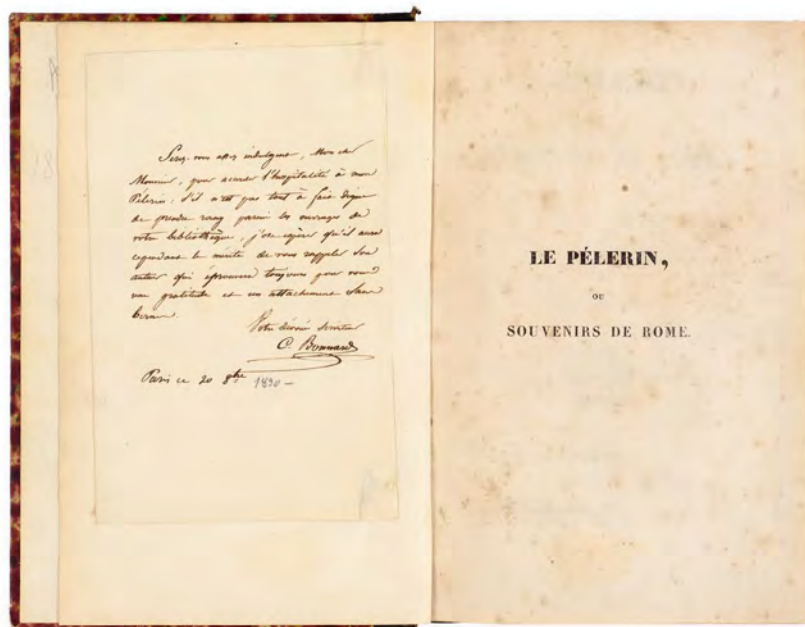 Serez-vous assez indulgent, Mon cher
Monsieur, pour accorder l'hospitalité à mon
Pélerin; s'il n'est pas tout à fait digne
de prendre rang parmi les ouvrages de
votre bibliothèque, j'ose espérer qu'il aura
cependant le mérite de vous rappeler son
auteur qui éprouvera toujours pour vous
une gratitude et un attachement sans
bornes
Votre dévoué serviteur
C. Bonnard
Paris ce 20 8bre 1830 -
LE PÉLERIN,
OU
SOUVENIRS DE ROME.